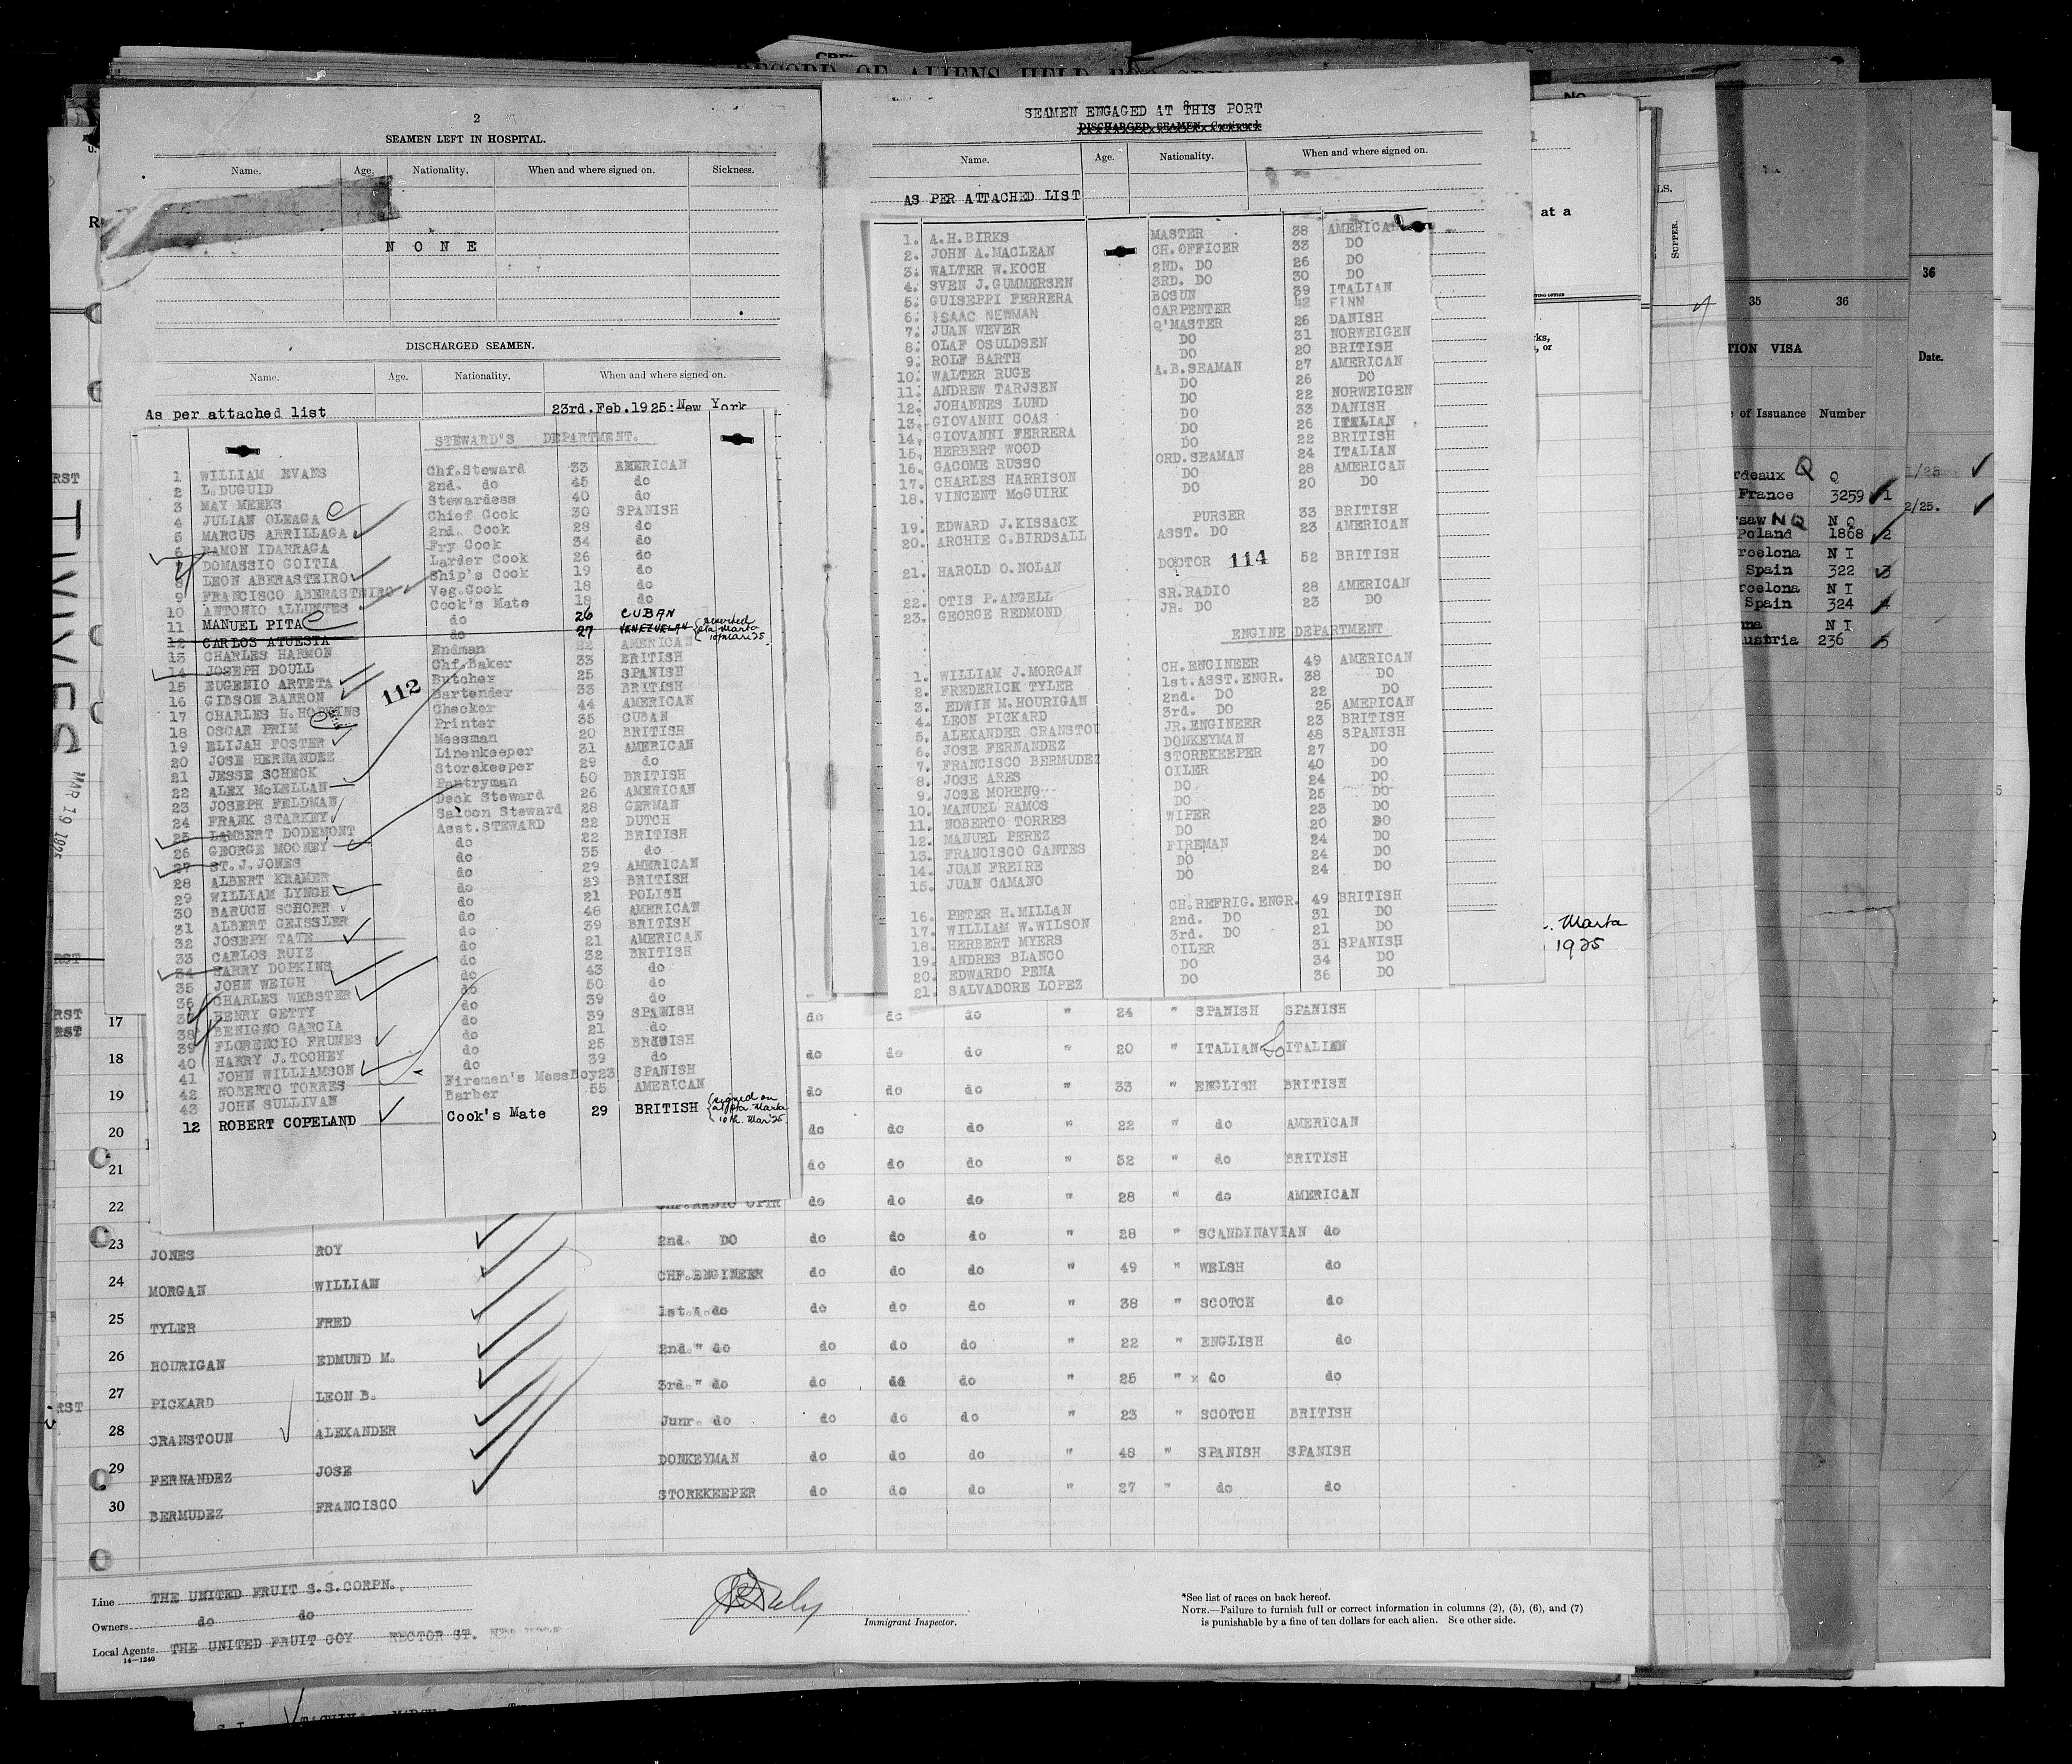 RECORD OF ALIENS HELD FOR
2
SEAMEN LEFT IN HOSPITAL.
Name. Age. Nationality. When and where signed on. Sickness.
N O N E
DISCHARGED SEAMEN.
Name. Age. Nationality. When and where signed on.
As per attached list 23rd.Feb.1925:New York
STEWARD'S DEPARTMENT.
1 WILLIAM EVANS Chf.Steward 33 AMERICAN
2 L.DUGUID 2nd. do 45 do
3 MAY MEEKS Stewardess 40 do
4 JULIAN OLEAGA Chief Cook 30 SPANISH
5 MARCUS ARRILLAGA 2nd. Cook 28 do
6 RAMON IDARRAGA Fry Cook 34 do
7 DOMASSIO GOITIA Larder Cook 26 do
8 LEON ABERASTEIRO Ship's Cook 19 do
9 FRANCISCO ABERASTEIRO Veg.Cook 18 do
10 ANTONIO ALLUNTES Cook's Mate 18 do
11 MANUEL PITA do 26 CUBAN
12 CARLOS ATUESTA do 27 VENEZUELAN deserted Sta Marta 10 Mar 25
13 CHARLES HARMON Endman 22 AMERICAN
14 JOSEPH DOULL Chf.Baker 33 BRITISH
15 EUGENIO ARTETA Butcher 25 SPANISH
16 GIBSON BARRON Bartender 33 BRITISH
17 CHARLES H.HOPKINS Checker 44 AMERICAN
18 OSCAR PRIM Printer 35 CUBAN
19 ELIJAH FOSTER Messman 20 BRITISH
20 JOSE HERNANDEZ Linenkeeper 31 AMERICAN
21 JESSE SCHECK Storekeeper 29 do
22 ALEX McLELLAN Pantryman 50 BRITISH
23 JOSEPH FELDMAN Deck Steward 26 AMERICAN
24 FRANK STARKEY Saloon Steward 28 GERMAN
25 LAMBERT DODEMONT Asst.STEWARD 22 DUTCH
26 GEORGE MOONEY do 22 BRITISH
27 ST.J.JONES do 35 do
28 ALBERT KRAMER do 29 AMERICAN
29 WILLIAM LYNCH do 23 BRITISH
30 BARUCH SCHORR do 21 POLISH
31 ALBERT GEISSLER do 48 AMERICAN
32 JOSEPH TATE do 39 BRITISH
33 CARLOS RUIZ do 21 AMERICAN
34 HARRY DOPKINS do 32 BRITISH
35 JOHN WEIGH do 43 do
36 CHARLES WEBSTER do 50 do
37 HENRY GETTY do 39 do
38 BENIGNO GARCIA do 39 SPANISH
39 FLORENCIO FRUNES do 21 do
40 HARRY J.TOOHEY do 25 BRITISH
41 JOHN WILLIAMSON do 39 do
42 NOBERTO TORRES Firemen's MessBoy 23 SPANISH
43 JOHN SULLIVAN Barber 55 AMERICAN
12 ROBERT COPELAND Cook's Mate 29 BRITISH signed on at Sta. Marta 10th. Mar 25
112
SEAMEN ENGAGED AT THIS PORT
DISCHARGED SEAMEN—Continued
Name. Age. Nationality. When and where signed on.
AS PER ATTACHED LIST
1. A.H.BIRKS MASTER 38 AMERICAN
2. JOHN A.MACLEAN CH.OFFICER 33 DO
3. WALTER W.KOCH 2ND. DO 26 DO
4. SVEN J.GUMMERSEN 3RD. DO 30 DO
5. GUISEPPI FERRERA BOSUN 39 ITALIAN
6. ISAAC NEWMAN CARPENTER 42 FINN
7. JUAN WEVER Q'MASTER 26 DANISH
8. OLAF OSULDSEN DO 31 NORWEIGEN
9. ROLF BARTH DO 20 BRITISH
10. WALTER RUGE A.B.SEAMAN 27 AMERICAN
11. ANDREW TARJSEN DO 26 DO
12. JOHANNES LUND DO 22 NORWEIGEN
13. GIOVANNI COAS DO 33 DANISH
14. GIOVANNI FERRERA DO 26 ITALIAN
15. HERBERT WOOD DO 22 BRITISH
16. GACOME RUSSO ORD.SEAMAN 24 ITALIAN
17. CHARLES HARRISON DO 28 AMERICAN
18. VINCENT McGUIRK DO 20 DO
19. EDWARD J.KISSACK PURSER 33 BRITISH
20. ARCHIE C.BIRDSALL ASST. DO 23 AMERICAN
21. HAROLD O.NOLAN DOCTOR 114 52 BRITISH
22. OTIS P.ANGELL SR.RADIO 28 AMERICAN
23. GEORGE REDMOND JR. DO 23 DO
ENGINE DEPARTMENT
1. WILLIAM J.MORGAN CH.ENGINEER 49 AMERICAN
2. FREDERICK TYLER 1st.ASST.ENGR. 38 DO
3. EDWIN M.HOURIGAN 2nd. DO 22 DO
4. LEON PICKARD 3rd. DO 25 AMERICAN
5. ALEXANDER CRANSTOU JR.ENGINEER 23 BRITISH
6. JOSE FERNANDEZ DONKEYMAN 48 SPANISH
7. FRANCISCO BERMUDEZ STOREKEEPER 27 DO
8. JOSE ARES OILER 40 DO
9. JOSE MORENO DO 24 DO
10. MANUEL RAMOS DO 25 DO
11. NOBERTO TORRES WIPER 23 DO
12. MANUEL PEREZ DO 20 DO
13. FRANCISCO GANTES FIREMAN 24 DO
14. JUAN FREIRE DO 24 DO
15. JUAN CAMANO DO 24 DO
16. PETER H.MILLAN CH.REFRIG.ENGR. 49 BRITISH
17. WILLIAM W.WILSON 2nd. DO 31 DO
18. HERBERT MYERS 3rd. DO 21 DO
19. ANDRES BLANCO OILER 31 SPANISH
20. EDWARDO PENA DO 34 DO
21. SALVADORE LOPEZ DO 36 DO
at a
LS.
SUPPER.
Marta
1925
35 36
TION VISA
of Issuance Number
rdeaux Q
France 3259 1
saw N Q
Poland 1868 2
rcelona N I
Spain 322 3
rcelona N I
Spain 324 4
N I
ustria 236 5
36
Date.
1/25
2/25.
TIVIVES
MAR 19 1925
17 do do do " 24 " SPANISH SPANISH
18 do do do " 20 " ITALIAN So ITALIAN
19 do do do " 33 " ENGLISH BRITISH
20 do do do " 22 " do AMERICAN
21 do do do " 52 " do BRITISH
22 CHF.RADIO OPTR do do do " 28 " do AMERICAN
23 JONES ROY 2nd. DO do do do " 28 " SCANDINAVIAN do
24 MORGAN WILLIAM CHF.ENGINEER do do do " 49 " WELSH do
25 TYLER FRED 1st.A.do do do do " 38 " SCOTCH do
26 HOURIGAN EDMUND M. 2nd." do do do do " 22 " ENGLISH do
27 PICKARD LEON B. 3rd." do do do do " 25 " x do do
28 CRANSTOUN ALEXANDER Junr. do do do do " 23 " SCOTCH BRITISH
29 FERNANDEZ JOSE DONKEYMAN do do do " 48 " SPANISH SPANISH
30 BERMUDEZ FRANCISCO STOREKEEPER do do do " 27 " do do
Line THE UNITED FRUIT S.S.CORPN.
Owners do do
Local Agents THE UNITED FRUIT COY RECTOR ST. NEW YORK
14—1240
Immigrant Inspector.
*See list of races on back hereof.
NOTE.—Failure to furnish full or correct information in columns (2), (5), (6), and (7)
is punishable by a fine of ten dollars for each alien. See other side.